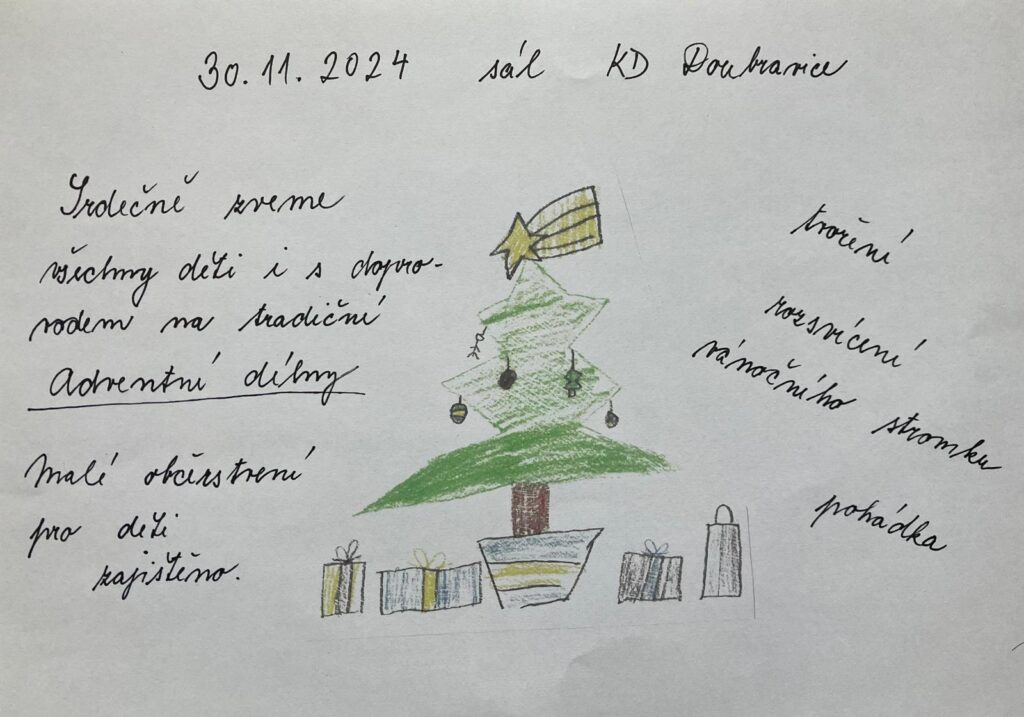 30.11.2024 sál KD Doubravice
Srdečně zveme
všechny děti i s dopro-
vodem na tradiční
Adventní dílny
Malé občerstvení
pro děti
zajištěno.
tvoření
rozsvícení
vánočního stromku
pohádka